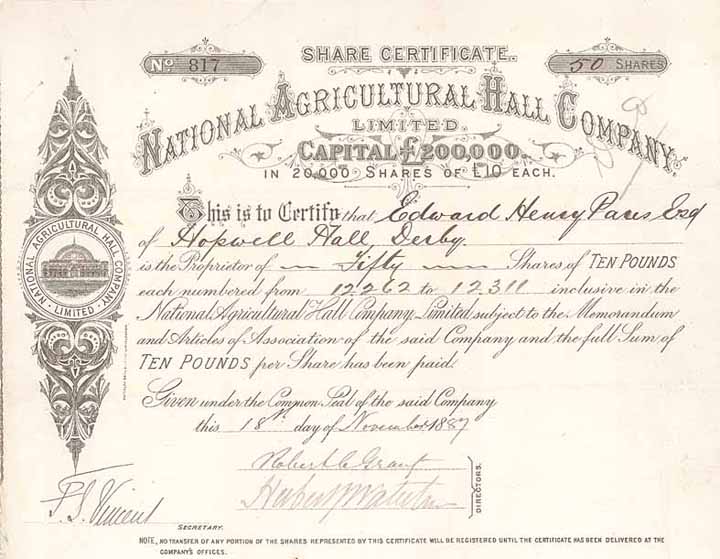 SHARE CERTIFICATE.
No. 817
50 SHARES
NATIONAL AGRICULTURAL HALL COMPANY,
LIMITED.
CAPITAL £200,000.
IN 20,000 SHARES OF £10 EACH.
This is to Certify that Edward Henry Pares Esq
of Hopwell Hall, Derby.
is the Proprietor of Fifty Shares of TEN POUNDS
each numbered from 12262 to 12311 inclusive in the
National Agricultural Hall Company, Limited subject to the Memorandum
and Articles of Association of the said Company and the full Sum of
TEN POUNDS per Share has been paid.
Given under the Common Seal of the said Company
this 18th day of November 1887
Robert C Grant
Herbert
DIRECTORS.
Vincent
SECRETARY.
NOTE, NO TRANSFER OF ANY PORTION OF THE SHARES REPRESENTED BY THIS CERTIFICATE WILL BE REGISTERED UNTIL THE CERTIFICATE HAS BEEN DELIVERED AT THE
COMPANY'S OFFICES.
NATIONAL AGRICULTURAL HALL COMPANY
LIMITED